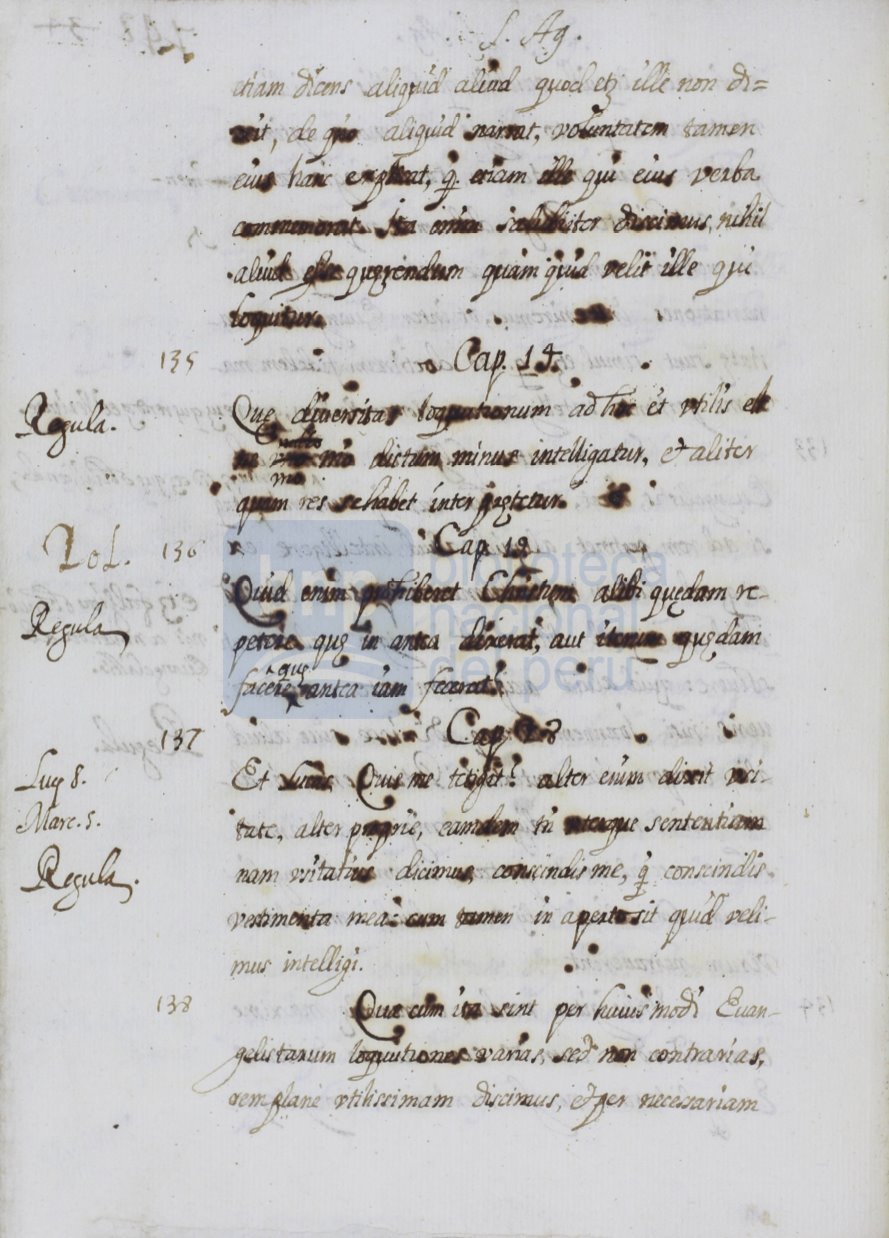 S. Ag.
etiam dicens aliquid aliud quod etz ille non di=
xit, de quo aliquid narrat, voluntatem tamen
eius hanc explicat, q̃ etiam ille qui eius verba
commemorat. Ita enim salubriter discimus, nihil
aliud esse quęrendum quàm quid velit ille qui
loquitur.
135 Cap. 14.
Regula. Que diversitas loquutionum ad hoc et vtilis est
ne uno modo dictum minus intelligatur, et aliter
quam res se habet inter pretetur.
Lol. 136 Cap. 19
Quid enim prohiberet Christum alibi quędam re-
Regula petere quę in antea dixerat, aut iterum quędam
facere que antea iam fecerat?
137 Cap. 28
Luę 8. Et Lucas Quis me tetigit? alter enim dixit vsi-
Marc. 5. tate, alter proprie, eamdem tñ uterque sententiam
Regula. nam vsitatius dicimus, conscindis me, q̃ conscindis
vestimenta mea: cum tamen in aperto sit quid veli-
mus intelligi.
138 Quae cùm ita sint per huius modi Euan-
gelistarum loquutiones varias, sed non contrarias,
rem planè vtilissimam discimus, et per necessariam
biblioteca
nacional
del perú